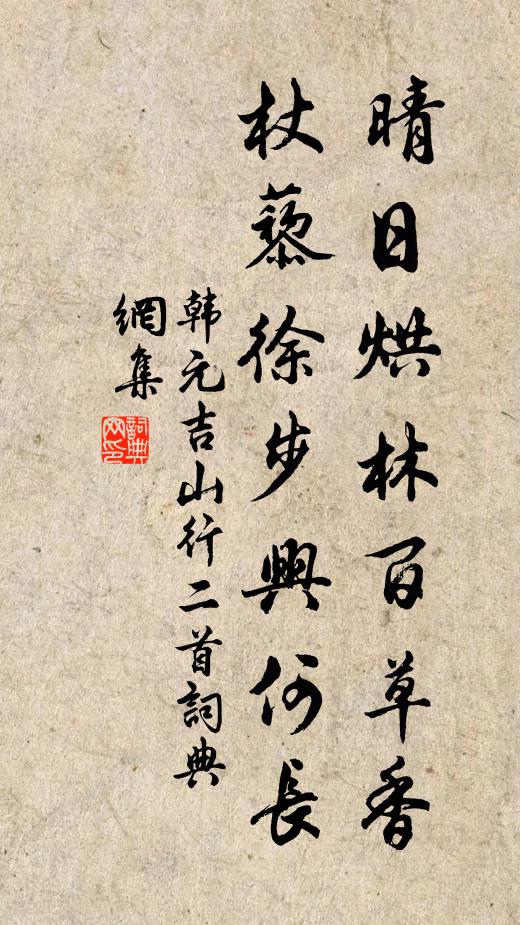 晴日烘林百草香
杖藜徐步興何長
韩元吉山行二首詞典
網集
詞典网印